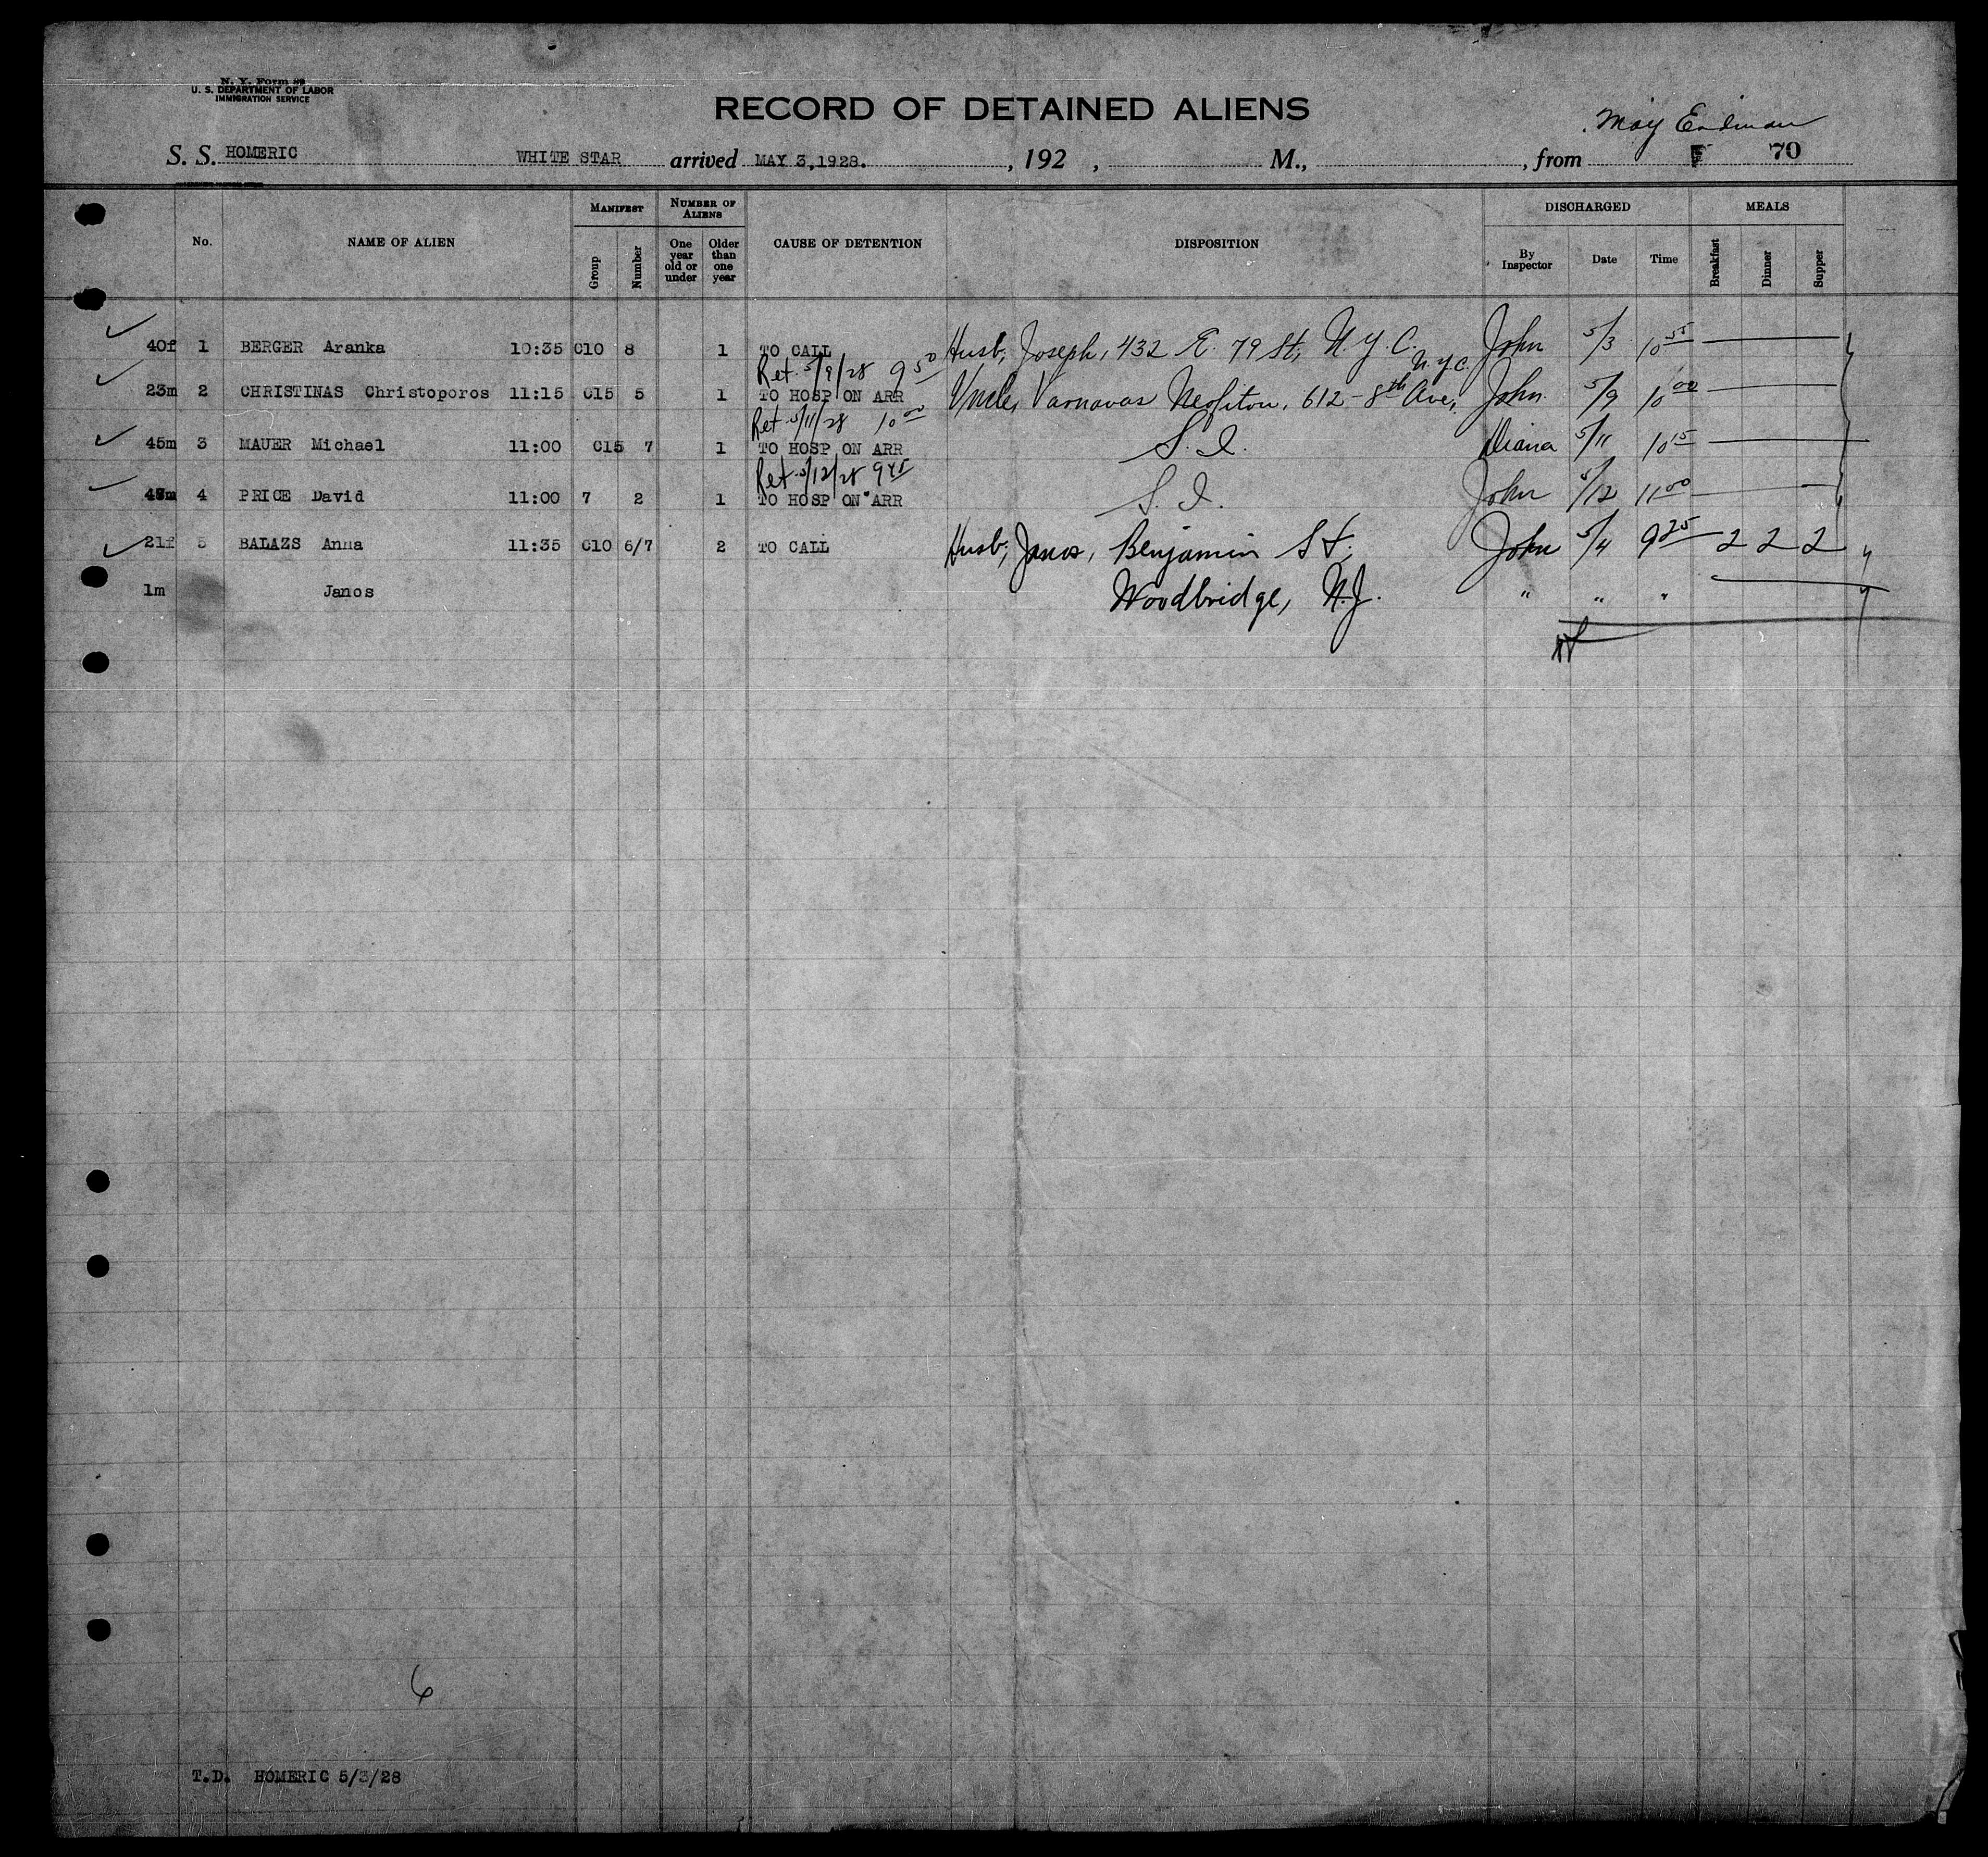 N. Y. Form 89
U. S. DEPARTMENT OF LABOR
IMMIGRATION SERVICE
RECORD OF DETAINED ALIENS
May
S. S. HOMERIC WHITE STAR arrived MAY 3,1928. , 192 , M., , from 70
MANIFEST NUMBER OF ALIENS DISCHARGED MEALS
No. NAME OF ALIEN Group Number One year old or under Older than one year CAUSE OF DETENTION DISPOSITION By Inspector Date Time Breakfast Dinner Supper
40f 1 BERGER Aranka 10:35 C10 8 1 TO CALL Husb, Joseph, 432 E. 79 St, N.Y.C. John 5/3 10 55
Ret 5/9/28 9 50 N.Y.C.
23m 2 CHRISTINAS Christoporos 11:15 C15 5 1 TO HOSP ON ARR Uncle, Varnavas Neofitou, 612-8th Ave, John 5/9 10 00
Ret 5/11/28 10 00
45m 3 MAUER Michael 11:00 C15 7 1 TO HOSP ON ARR S.I. Diana 5/11 10 15
Ret 5/12/28 9 45
4 PRICE David 11:00 7 2 1 TO HOSP ON ARR S.I. John 5/12 11 00
21f 5 BALAZS Anna 11:35 C10 6/7 2 TO CALL Husb, Janos, Benjamin St, John 5/4 9 25 2 2 2
1m Janos Woodbridge, N.J. " " "
6
T.D. HOMERIC 5/3/28